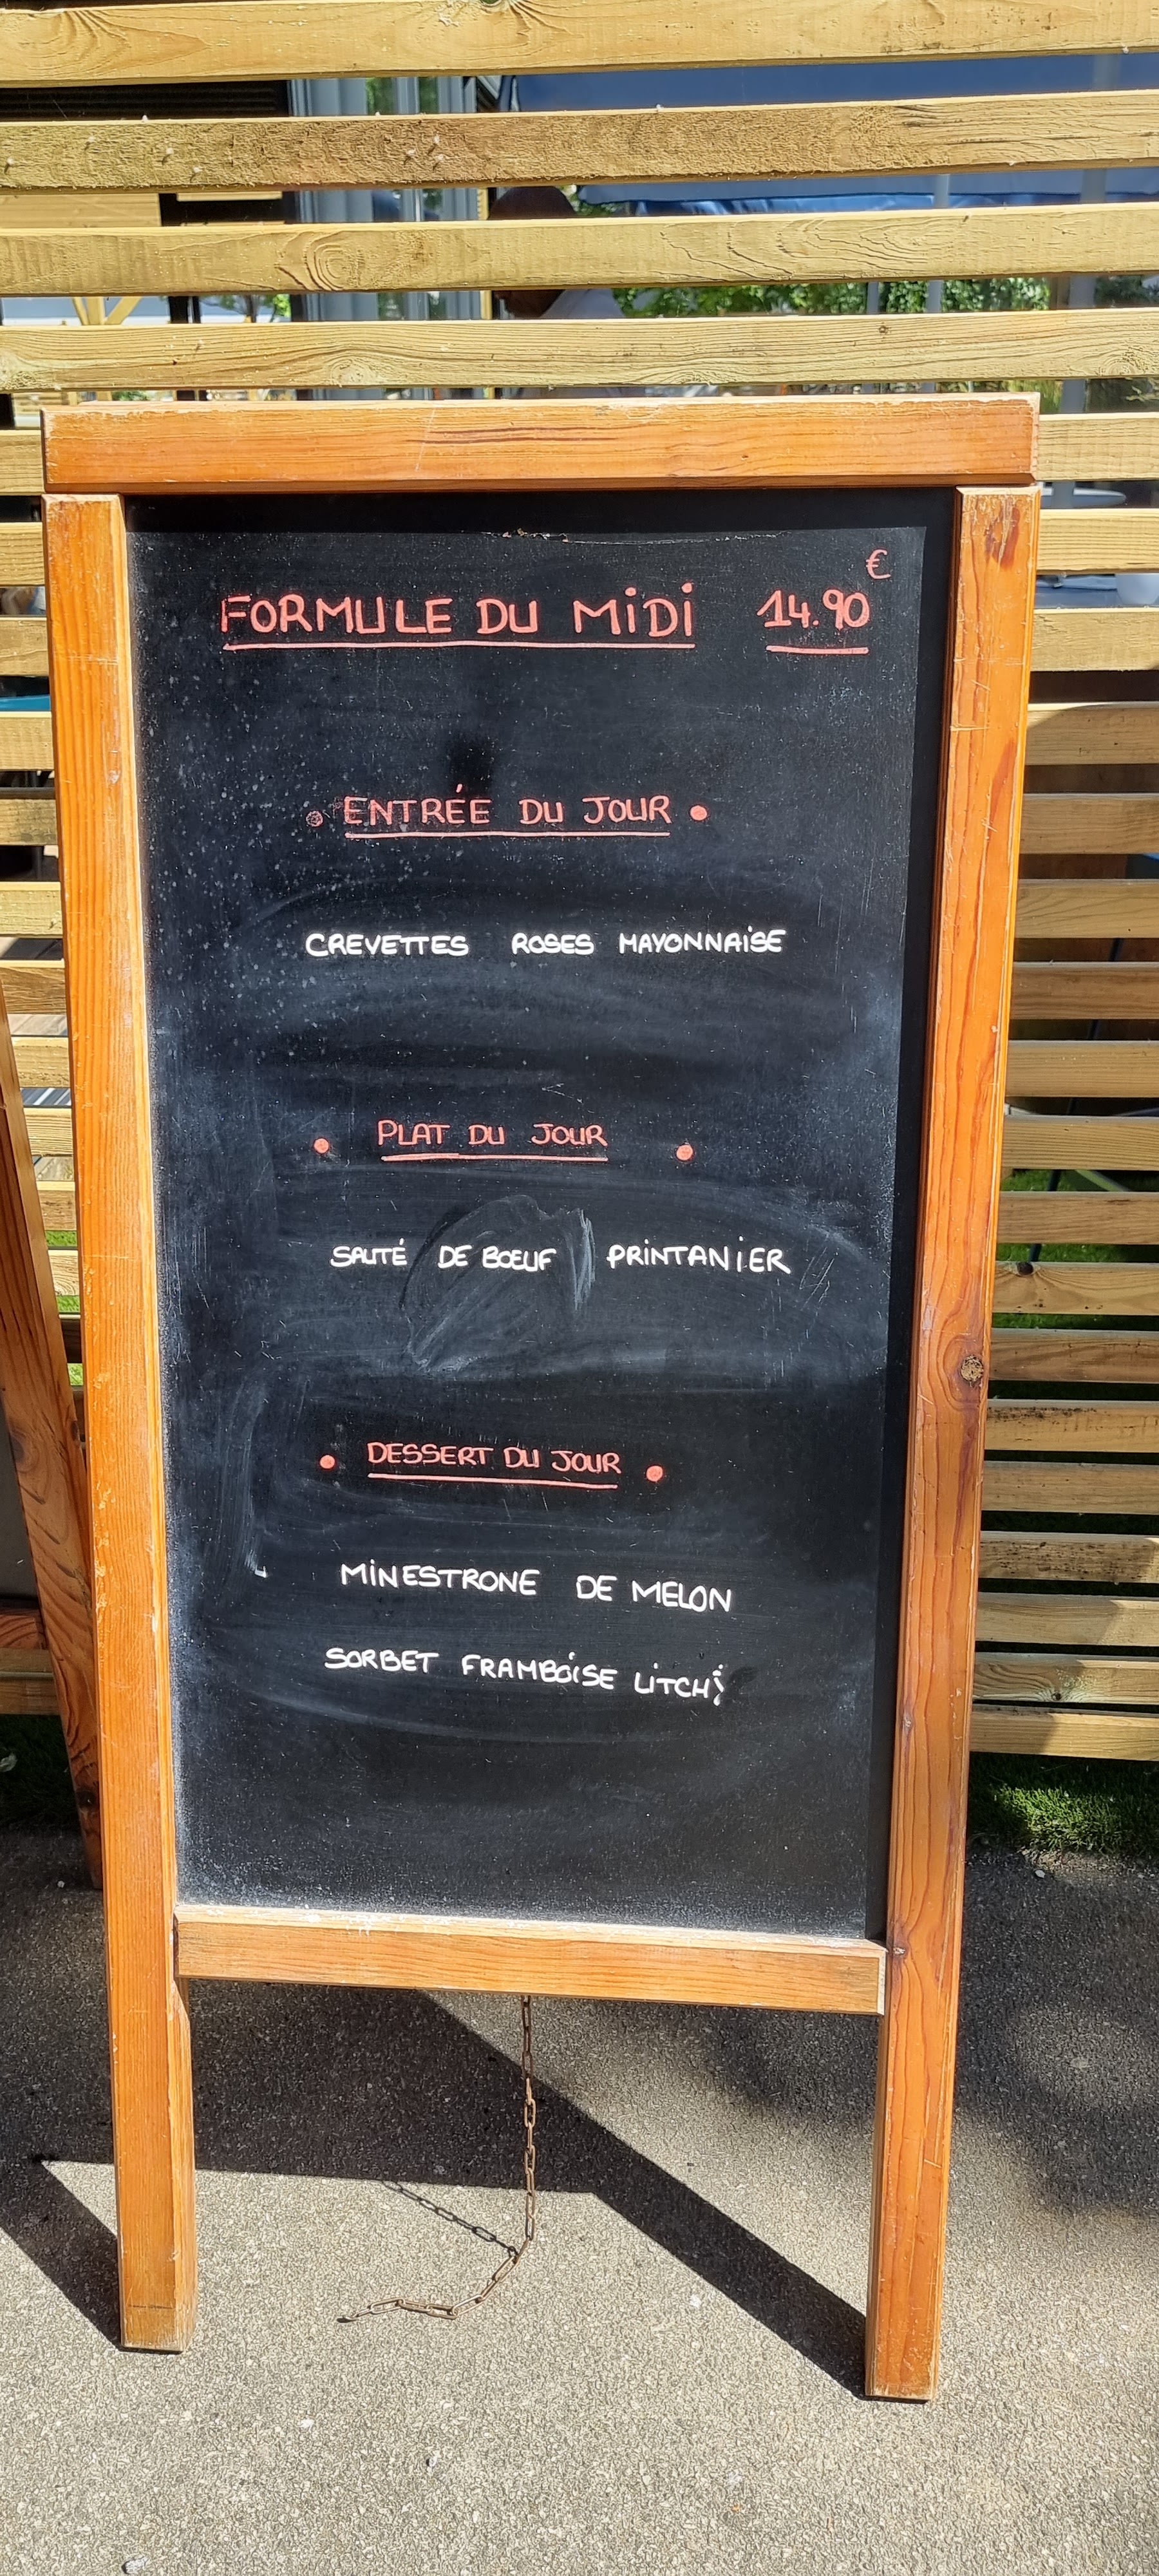 €
FORMULE DU MiDi 14.90
• ENTRÉE DU JOUR •
CREVETTES ROSES MAYONNAiSE
• PLAT DU JOUR •
SAUTÉ DE BOEUF PRiNTANiER
• DESSERT DU JOUR •
MiNESTRONE DE MELON
SORBET FRAMBOiSE LiTCHi